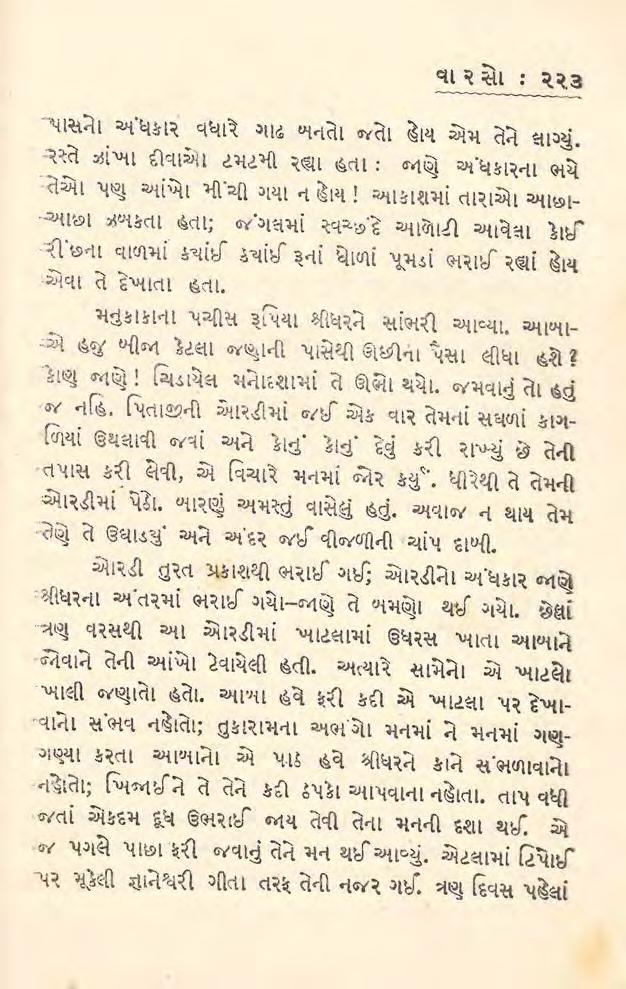 વા ર સો : ૨૨૩
પાસનો અંધકાર વધારે ગાઢ બનતો જતો હોય એમ તેને લાગ્યું.
રસ્તે ઝાંખા દીવાઓ ટમટમી રહ્યા હતા : જાણે અંધકારના ભયે
તેઓ પણ આંખો મીંચી ગયા ન હોય! આકાશમાં તારાઓ આછા-
આછા ઝબકતા હતા; જંગલમાં સ્વચ્છંદે આળોટી આવેલા કોઈ
રીંછના વાળમાં ક્યાંઈ ક્યાંઈ રૂનાં ધોળાં પૂમડાં ભરાઈ રહ્યાં હોય
એવા તે દેખાતા હતા.
મનુકાકાના પચીસ રૂપિયા શ્રીધરને સાંભરી આવ્યા. આબા-
એ હજુ બીજા કેટલા જણાની પાસેથી ઊછીના પૈસા લીધા હશે?
કોણ જાણે! ચિડાયેલ મનોદશામાં તે ઊભો થયો. જમવાનું તો હતું
જ નહિ. પિતાજીની ઓરડીમાં જઈ એક વાર તેમનાં સઘળાં કાગ-
ળિયાં ઉથલાવી જવાં અને કોનું કોનું દેવું કરી રાખ્યું છે તેની
તપાસ કરી લેવી, એ વિચારે મનમાં જોર કર્યું. ધીરેથી તે તેમની
ઓરડીમાં પેઠો. બારણું અમસ્તું વાસેલું હતું. અવાજ ન થાય તેમ
તેણે તે ઉઘાડ્યું અને અંદર જઈ વીજળીની ચાંપ દાબી.
ઓરડી તુરત પ્રકાશથી ભરાઈ ગઈ; ઓરડીનો અંધકાર જાણે
શ્રીધરના અંતરમાં ભરાઈ ગયો—જાણે તે બમણો થઈ ગયો. છેલ્લાં
ત્રણ વરસથી આ ઓરડીમાં ખાટલામાં ઉધરસ ખાતા આબાને
જોવાને તેની આંખો ટેવાયેલી હતી. અત્યારે સામેનો એ ખાટલો
ખાલી જણાતો હતો. આબા હવે ફરી કદી એ ખાટલા પર દેખા-
વાનો સંભવ નહોતો; તુકારામના અભંગો મનમાં ને મનમાં ગણ-
ગણ્યા કરતા આબાનો એ પાઠ હવે શ્રીધરને કાને સંભળાવાનો
નહોતો; ખિજાઈને તે તેને કદી ઠપકો આપવાના નહોતા. તાપ વધી
જતાં એકદમ દૂધ ઉભરાઈ જાય તેવી તેના મનની દશા થઈ. એ
જ પગલે પાછા ફરી જવાનું તેને મન થઈ આવ્યું. એટલામાં ટિપોઈ
પર મૂકેલી જ્ઞાનેશ્વરી ગીતા તરફ તેની નજર ગઈ. ત્રણ દિવસ પહેલાં